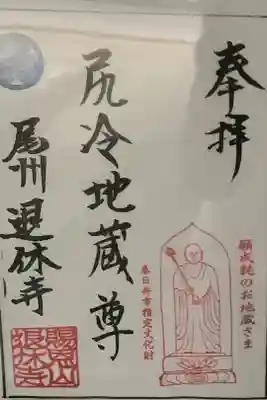 奉拝
願成就のお地蔵さま
春日井市指定文化財
尻冷地蔵尊
尾州 退休寺